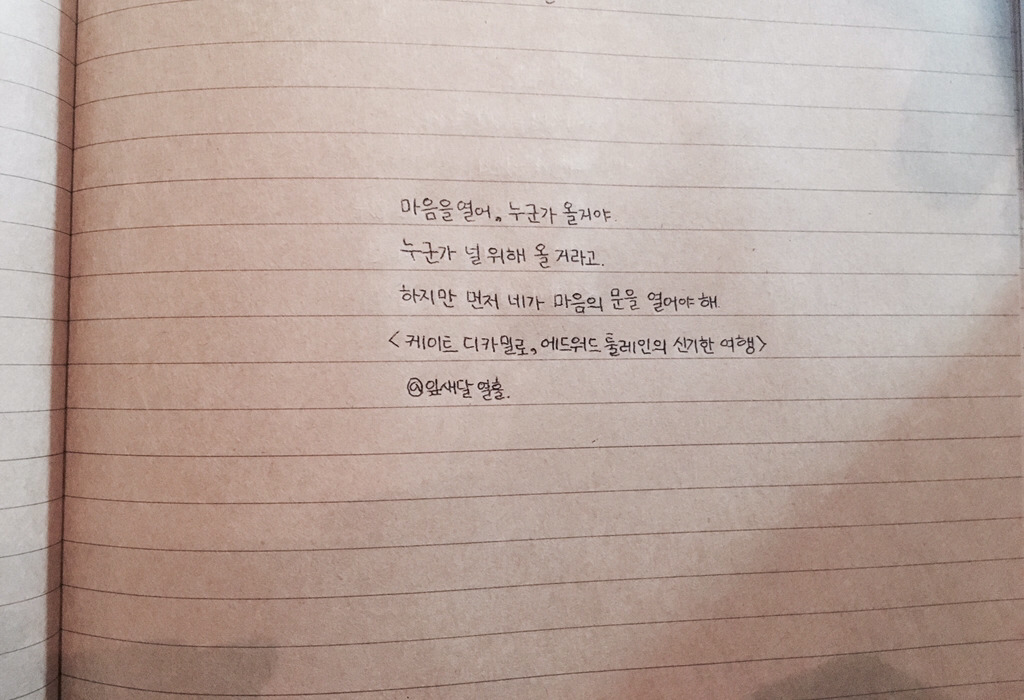 마음을 열어. 누군가 올거야.
누군가 널 위해 올 거라고.
하지만 먼저 네가 마음의 문을 열어야 해.
<케이트 디카밀로, 에드워드 툴레인의 신기한 여행>
@잎새달 열훌.